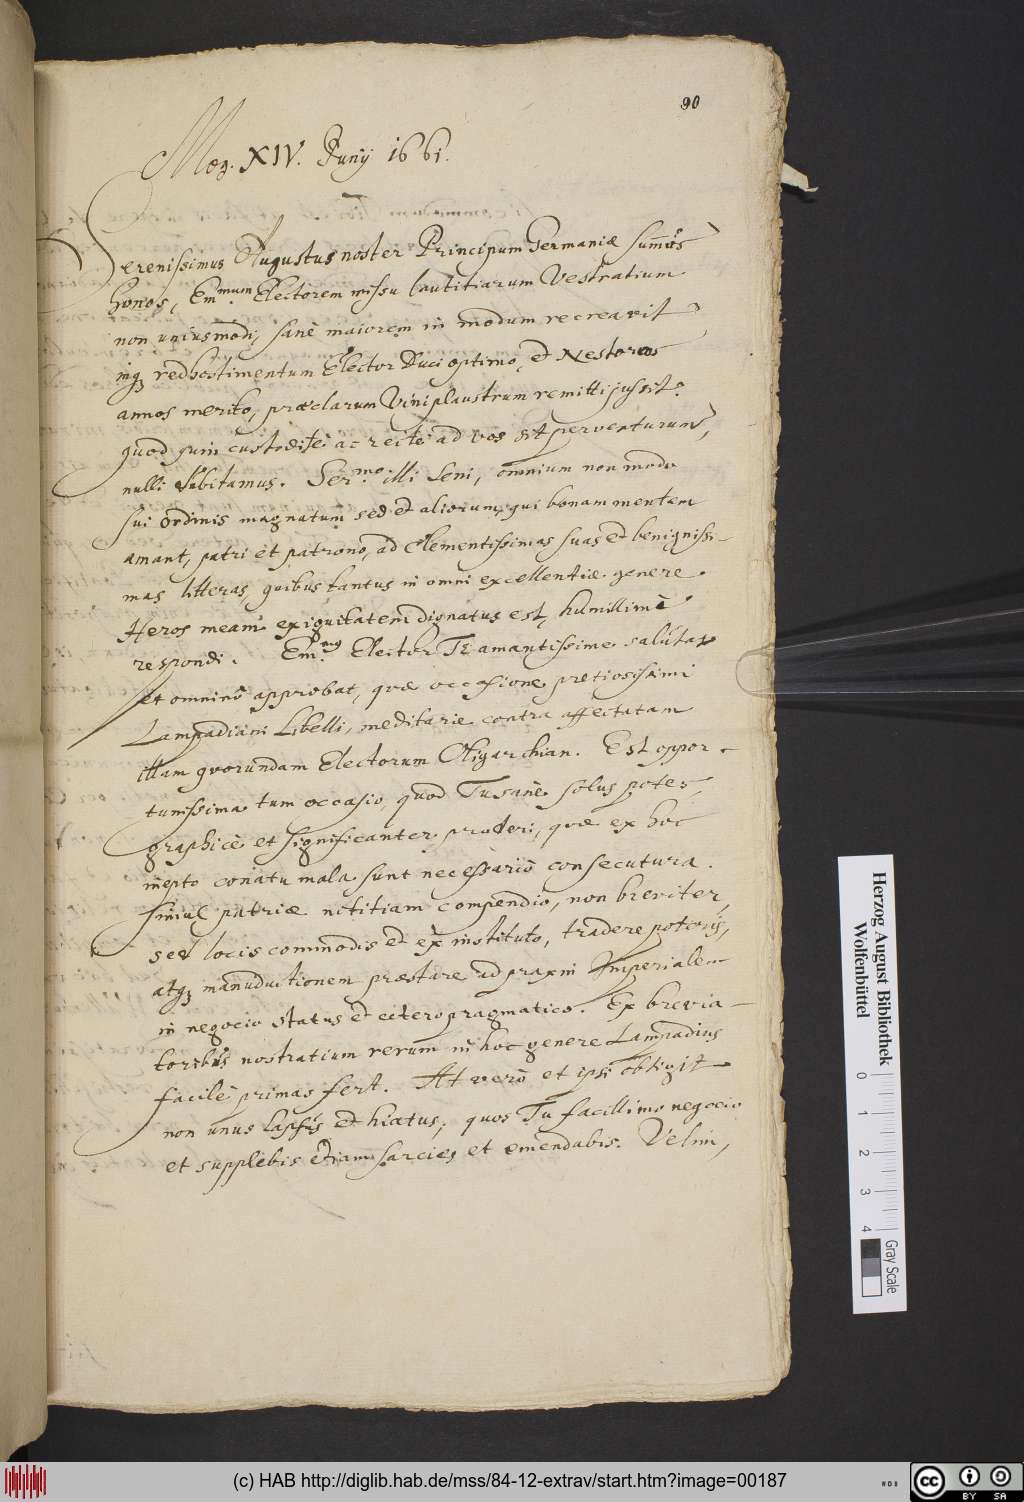 90
Mog. XIV. Junij 1661.
Serenissimus Augustus noster Principum Germaniæ summus
honos, Em^mum. Electorem missu lautitiarum Vestratium
non uniusmodi, sanè maiorem in modum recreavit,
inq3 redhostimentum Elector Duci optimo, et Nestoreos
annos merito, præclarum Vini plaustrum remitti jussit.
quod quin custoditè ac rectè ad vos sit perventurum,
nulli dubitamus. Ser^mo. illi Seni, omnium non modo
sui ordinis magnatum sed et aliorum, qui bonam mentem
amant, patri et patrono, ad Clementissimas suas et benignissi-
mas litteras, quibus tantus in omni excellentiæ genere
Heros meam exiguitatem dignatus est, humillimè
respondi. Em^mus. Elector Te amantissime salutat
et omninò approbat, quæ occasione pretiosissimi
Lampadiani Libelli, meditaris contra affectatam
illam quorundam Electorum Oligarchian. Est oppor-
tunissima tum occasio, quod Tu sanè solus potes,
graphicè et significanter prodere, quæ ex hoc
inepto conatu mala sunt necessariò consecutura.
simul patriæ notitiam compendio, non breviter,
sed locis commodis et ex instituto, tradere poteris,
atq3 manuductionem præstare ad praxin Imperialem
in negocio status et cetero pragmatico. Ex brevia-
toribus nostratium rerum in hoc genere Lampadius
facilè primas fert. At verò et ipsi obtigit
non unus lapsus et hiatus, quos Tu facillimo negocio
et supplebis etiam sarcies et emendabis. Velim,
Herzog August Bibliothek
Wolfenbüttel
0 1 2 3 4
Gray Scale
(c) HAB http://diglib.hab.de/mss/84-12-extrav/start.htm?image=00187
cc BY SA